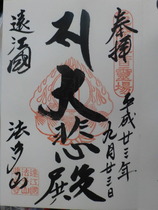 奉拝
平成廿三年九月廿三日
大悲殿
遠江國
法多山